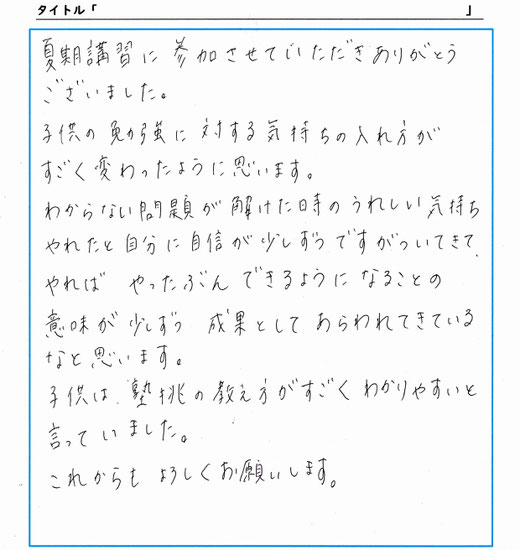 タイトル「 」
夏期講習に参加させていただきありがとう
ございました。
子供の勉強に対する気持ちの入れ方が
すごく変わったように思います。
わからない問題が解けた時のうれしい気持ち
やれたと自分に自信が少しずつですがついてきて、
やれば やったぶん できるようになることの
意味が少しずつ 成果としてあらわれてきている
なと思います。
子供は、塾挑の教え方がすごくわかりやすいと
言っていました。
これからも よろしくお願いします。